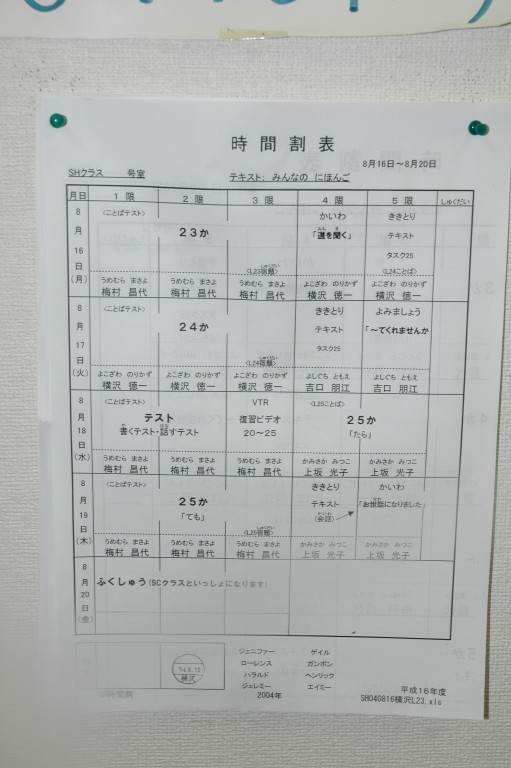 時間割表
8月16日～8月20日
SHクラス 号室 テキスト: みんなの にほんご
月日 1 限 2 限 3 限 4 限 5 限 しゅくだい
8月16日(月)
<ことばテスト>
23か
<L23宿題>
しゅくだい
かいわ
「道を聞く」
みち き
ききとり
テキスト
タスク25
<L24ことば>
うめむら まさよ うめむら まさよ うめむら まさよ よこざわ のりかず よこざわ のりかず
梅村 昌代 梅村 昌代 梅村 昌代 横沢 徳一 横沢 徳一
8月17日(火)
<ことばテスト>
24か
<L24宿題>
しゅくだい
ききとり
テキスト
タスク25
よみましょう
「～てくれませんか
よこざわ のりかず よこざわ のりかず よこざわ のりかず よしぐち ともえ よしぐち ともえ
横沢 徳一 横沢 徳一 横沢 徳一 吉口 朋江 吉口 朋江
8月18日(水)
<ことばテスト>
テスト
書くテスト・話すテスト
VTR
復習ビデオ
20～25
<L25ことば>
25か
「たら」
うめむら まさよ うめむら まさよ うめむら まさよ かみさか みつこ かみさか みつこ
梅村 昌代 梅村 昌代 梅村 昌代 上坂 光子 上坂 光子
8月19日(木)
<ことばテスト>
25か
「ても」
<L25宿題>
しゅくだい
ききとり
テキスト
(会話)
かいわ
かいわ
「お世話になりました」
せわ
うめむら まさよ うめむら まさよ うめむら まさよ かみさか みつこ かみさか みつこ
梅村 昌代 梅村 昌代 梅村 昌代 上坂 光子 上坂 光子
8月20日(金)
ふくしゅう(SCクラスといっしょになります)
横沢
ジェニファー ゲイル
ローレンス ガンボン
ハラルド ヘンリック
ジェレミー エイミー
2004年
平成16年度
SH040816横沢L23.xls